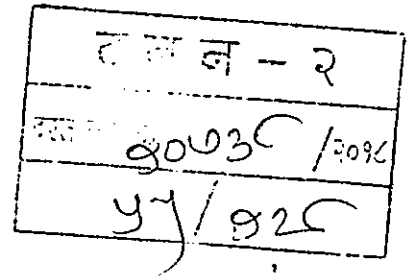 ट न न - २
१०७३८ /२०१८
५५/१२८